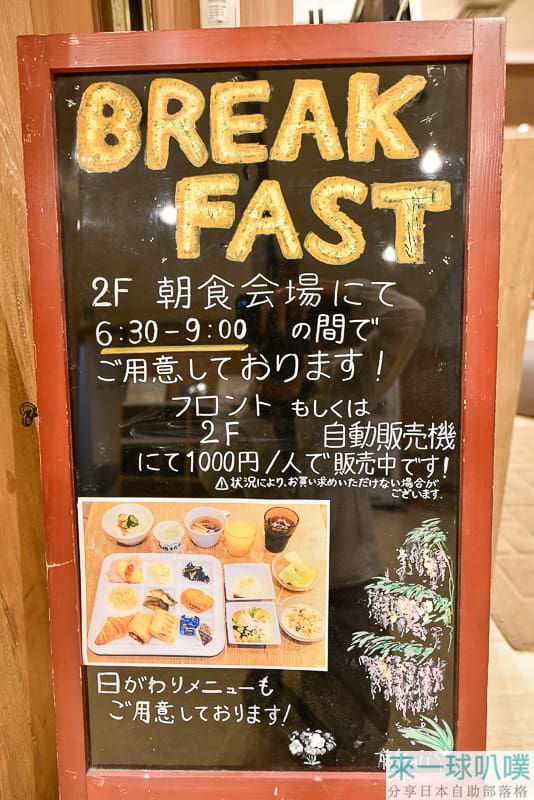 BREAK
FAST
2F 朝食会場にて
6:30-9:00 の間で
ご用意しております!
フロント もしくは
2F 自動販売機
にて1000円/人で販売中です!
⚠状況により、お買い求めいただけない場合が
ございます。
日がわりメニューも
ご用意しております!
來一球叭噗
分享日本自助部落格